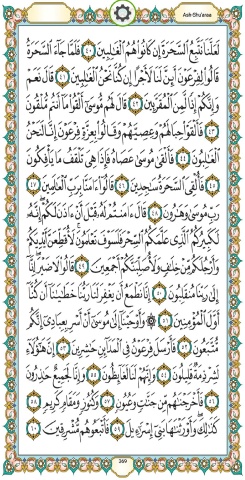 Ash-Shu'araa
لَعَلَّنَا نَتَّبِعُ السَّحَرَةَ إِن كَانُوا هُمُ الْغَالِبِينَ ٤٠ فَلَمَّا جَاءَ السَّحَرَةُ
قَالُوا لِفِرْعَوْنَ أَئِنَّ لَنَا لَأَجْرًا إِن كُنَّا نَحْنُ الْغَالِبِينَ ٤١ قَالَ نَعَمْ
وَإِنَّكُمْ إِذًا لَّمِنَ الْمُقَرَّبِينَ ٤٢ قَالَ لَهُم مُّوسَىٰ أَلْقُوا مَا أَنتُم مُّلْقُونَ
٤٣ فَأَلْقَوْا حِبَالَهُمْ وَعِصِيَّهُمْ وَقَالُوا بِعِزَّةِ فِرْعَوْنَ إِنَّا لَنَحْنُ
الْغَالِبُونَ ٤٤ فَأَلْقَىٰ مُوسَىٰ عَصَاهُ فَإِذَا هِيَ تَلْقَفُ مَا يَأْفِكُونَ
٤٥ فَأُلْقِيَ السَّحَرَةُ سَاجِدِينَ ٤٦ قَالُوا آمَنَّا بِرَبِّ الْعَالَمِينَ ٤٧
رَبِّ مُوسَىٰ وَهَارُونَ ٤٨ قَالَ آمَنتُمْ لَهُ قَبْلَ أَنْ آذَنَ لَكُمْ إِنَّهُ
لَكَبِيرُكُمُ الَّذِي عَلَّمَكُمُ السِّحْرَ فَلَسَوْفَ تَعْلَمُونَ لَأُقَطِّعَنَّ أَيْدِيَكُمْ
وَأَرْجُلَكُم مِّنْ خِلَافٍ وَلَأُصَلِّبَنَّكُمْ أَجْمَعِينَ ٤٩ قَالُوا لَا ضَيْرَ إِنَّا
إِلَىٰ رَبِّنَا مُنقَلِبُونَ ٥٠ إِنَّا نَطْمَعُ أَن يَغْفِرَ لَنَا رَبُّنَا خَطَايَانَا أَن كُنَّا
أَوَّلَ الْمُؤْمِنِينَ ٥١ ۞ وَأَوْحَيْنَا إِلَىٰ مُوسَىٰ أَنْ أَسْرِ بِعِبَادِي إِنَّكُم
مُّتَّبَعُونَ ٥٢ فَأَرْسَلَ فِرْعَوْنُ فِي الْمَدَائِنِ حَاشِرِينَ ٥٣ إِنَّ هَٰؤُلَاءِ
لَشِرْذِمَةٌ قَلِيلُونَ ٥٤ وَإِنَّهُمْ لَنَا لَغَائِظُونَ ٥٥ وَإِنَّا لَجَمِيعٌ حَاذِرُونَ
٥٦ فَأَخْرَجْنَاهُم مِّن جَنَّاتٍ وَعُيُونٍ ٥٧ وَكُنُوزٍ وَمَقَامٍ كَرِيمٍ ٥٨
كَذَٰلِكَ وَأَوْرَثْنَاهَا بَنِي إِسْرَائِيلَ ٥٩ فَأَتْبَعُوهُم مُّشْرِقِينَ ٦٠
369